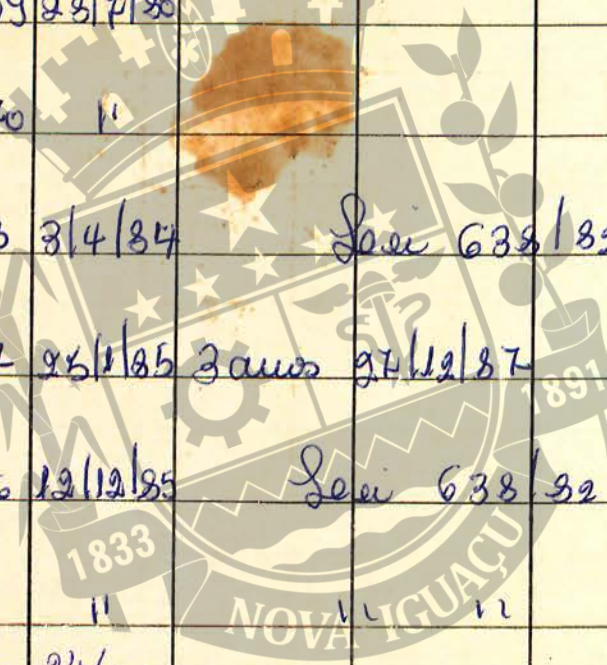 23/7/80
"
3/4/84 Lei 638/82
25/1/85 3 anos 27/12/87
1891
12/12/85 Lei 638/82
1833
" " "
NOVA IGUAÇU